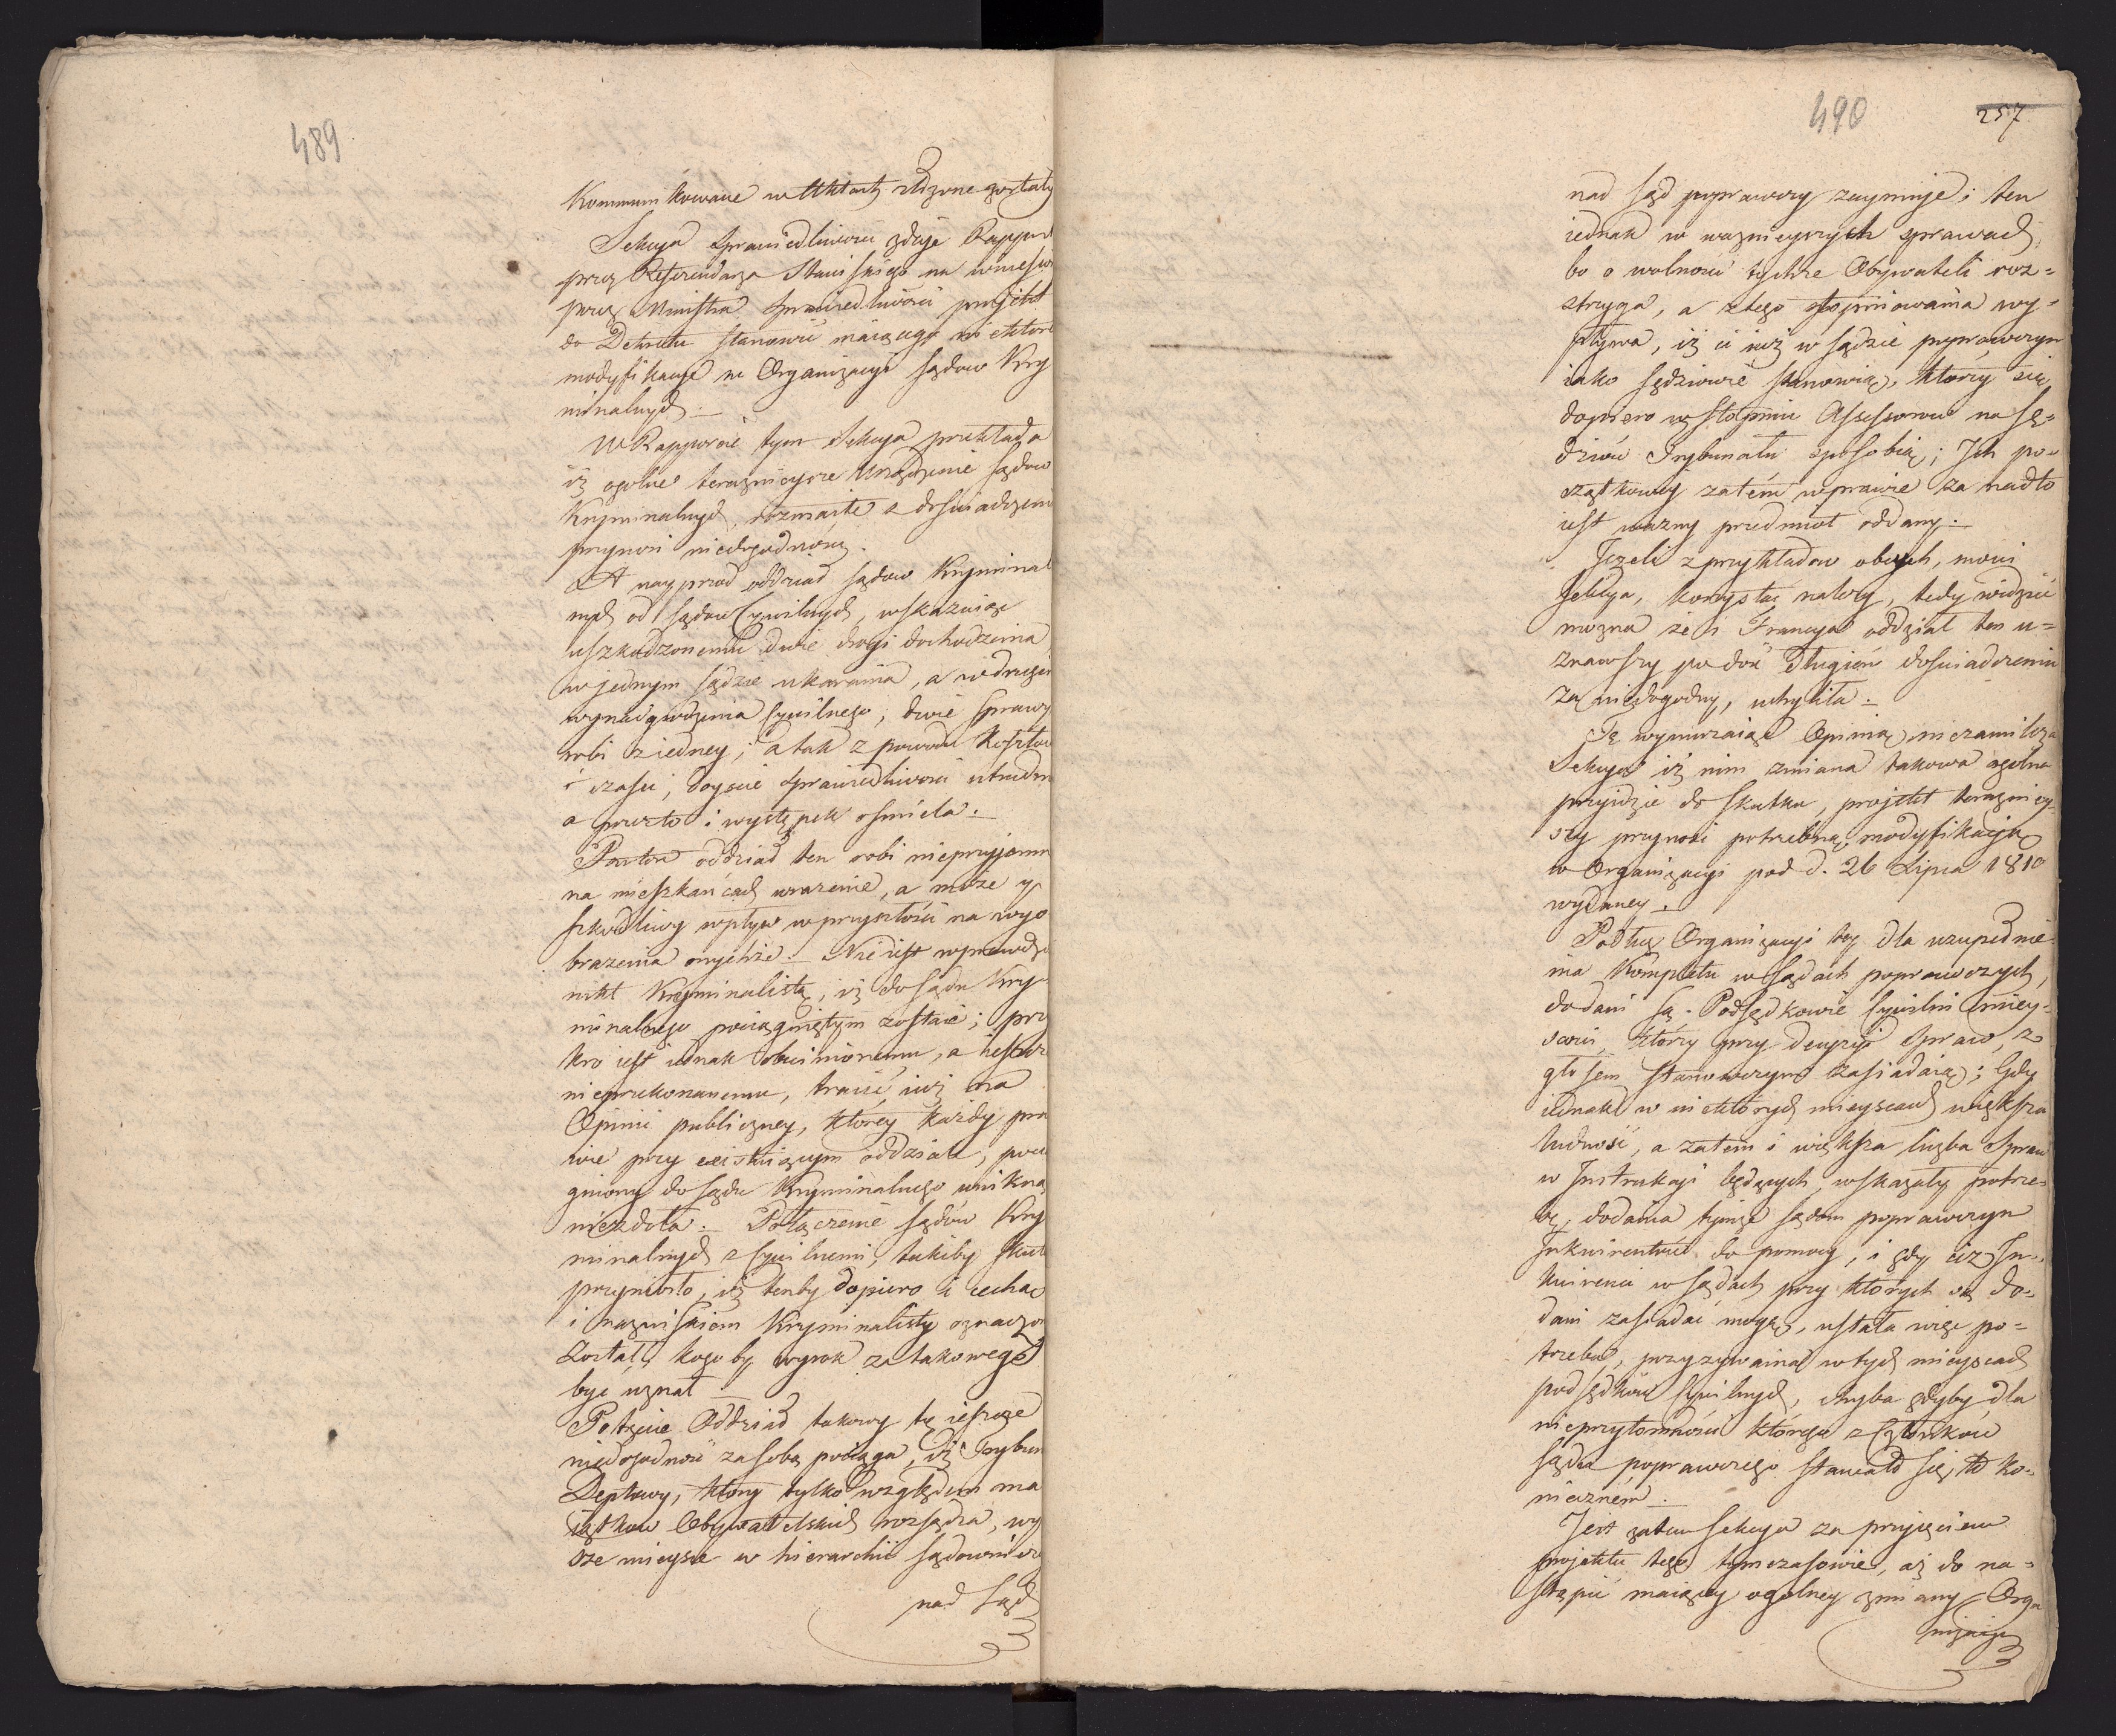 489
Kommunikowane w Aktach złożone zostały
Sekcya Sprawiedliwości zdaje Rapport
przez Referendarza Stawiskiego na wniesiony
przez Ministra Sprawiedliwości projekt
do Dekretu stanowić maiącego niektóre
modyfikacye w Organizacyi Sądów Kry
minalnych.
W Rapporcie tym Sekcya przekłada
iż ogolne teraznieysze Urządzenie Sądow
Kryminalnych, rozmaite a doświadczeniem
przynosi niedogodności.
A nayprzod oddział Sądow Kryminal
nych od Sądow Cywilnych, wskazuiąc
uszkodzonemu dwie drogi dochodzenia
w jednym Sądzie ukarania, a w drugim
wynadgrodzenia Cywilnego; dwie Sprawy
robi z iedney; a tak z powodu kosztow
i czasu, doyscie Sprawiedliwości utrudn
a przeto i występek ośmiela.
Powtore oddział ten robi nieprzyjemne
na mieszkańcach wrażenie, a może y
szkodliwy wpływ w przyszłości na wyo
brażenia onychże. Nie iest wprawdzie
nikt Kryminalistą, iż do Sądu Kry
minalnego pociągniętym zostaie; przy
kro iest iednak obwinionemu, a ieszcze
nieprzekonanemu, tracić iuż na
Opinii publiczney, ktorey każdy pra
wie przy exystuiącym oddziale, pocią
gniony do Sądu Kryminalnego uniknąć
niezdoła. Połączenie Sądów Kry
minalnych z Cywilnemi, takiby skutek
przyniosło, iż tenby dopiero i cechą
i nazwiskiem Kryminalisty oznaczon
został, kogo by wyrok za takowego
być uznał
Potrzecie Oddział takowy tę ieszcze
niedogodność za sobą pociąga, iż Trybun
Deptowy, ktory tylko względem ma
iątkow Obywatelskich rozsądza, wy
ższe mieysce w hierarchii Sądownicze
nad Sąd
490
257
nad Sąd poprawczy zaymuje; ten
iednak w waznieyszych sprawach,
bo o wolności tychże Obywateli roz=
strzyga, a z tego stopniowania wy=
pływa, iż ci iuż w Sądzie poprawczym
iako Sędziowie stanowią, ktorzy się
dopiero w stopniu Assessorow na Sę=
dziów Trybunału sposobią; Ich po=
czątkowey zatém wprawie za nadto
iest wazny przedmiot oddany.
Jeżeli z przykładow obcych, mówi
Sekcya, korzystać należy, tedy widzieć
mozna że i Francya oddział ten u=
znawszy po dość długiém doświadczeniu
za niedogodny, uchyliła.
Tę wynurzaiąc Opinią niezamilcza
Sekcya iż nim zmiana takowa ogolna
przyidzie do skutku, projekt terazniey=
szy przynosi potrzebną modyfikacją
w Organizacyi pod d. 26 Lipca 1810
wydaney.
Podług Organizacyi tey dla uzupełnie=
nia Kompletu w Sądach poprawczych,
dodani są Podsędkowie Cywilni miey=
scowi, ktorzy przy decyzyi Spraw, z
głosem stanowczym zasiadaią; Gdy
iednak w niektórych mieyscach większa
ludność, a zatem i większa liczba Spraw
w Instrukcyi będących, wskazały potrze=
bę, dodania tymże Sądom poprawczym
Inkwirentów do pomocy, i gdy ciż In=
kwirenci w Sądach przy ktorych są do=
dani zasiadać mogą, ustała więc po=
trzeba, przyzywania w tych mieyscach
podsędków Cywilnych, chyba gdyby dla
nieprzytomności którego z Członków
Sądu poprawczego stawało się to ko=
niecznem.
Jest zatem Sekcya za przyjęciem
projektu tego tymczasowie, aż do na=
stąpić maiącey ogolney zmiany Orga
nizacyi